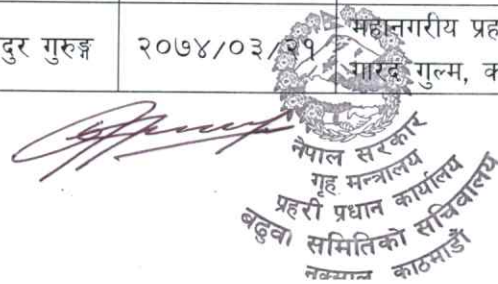 दुर गुरुङ्ग २०७४/०३/२१ महानगरीय प्रह
गारद गुल्म, क
नेपाल सरकार
गृह मन्त्रालय
प्रहरी प्रधान कार्यालय
बढुवा समितिको सचिवालय
नक्साल काठमाडौं